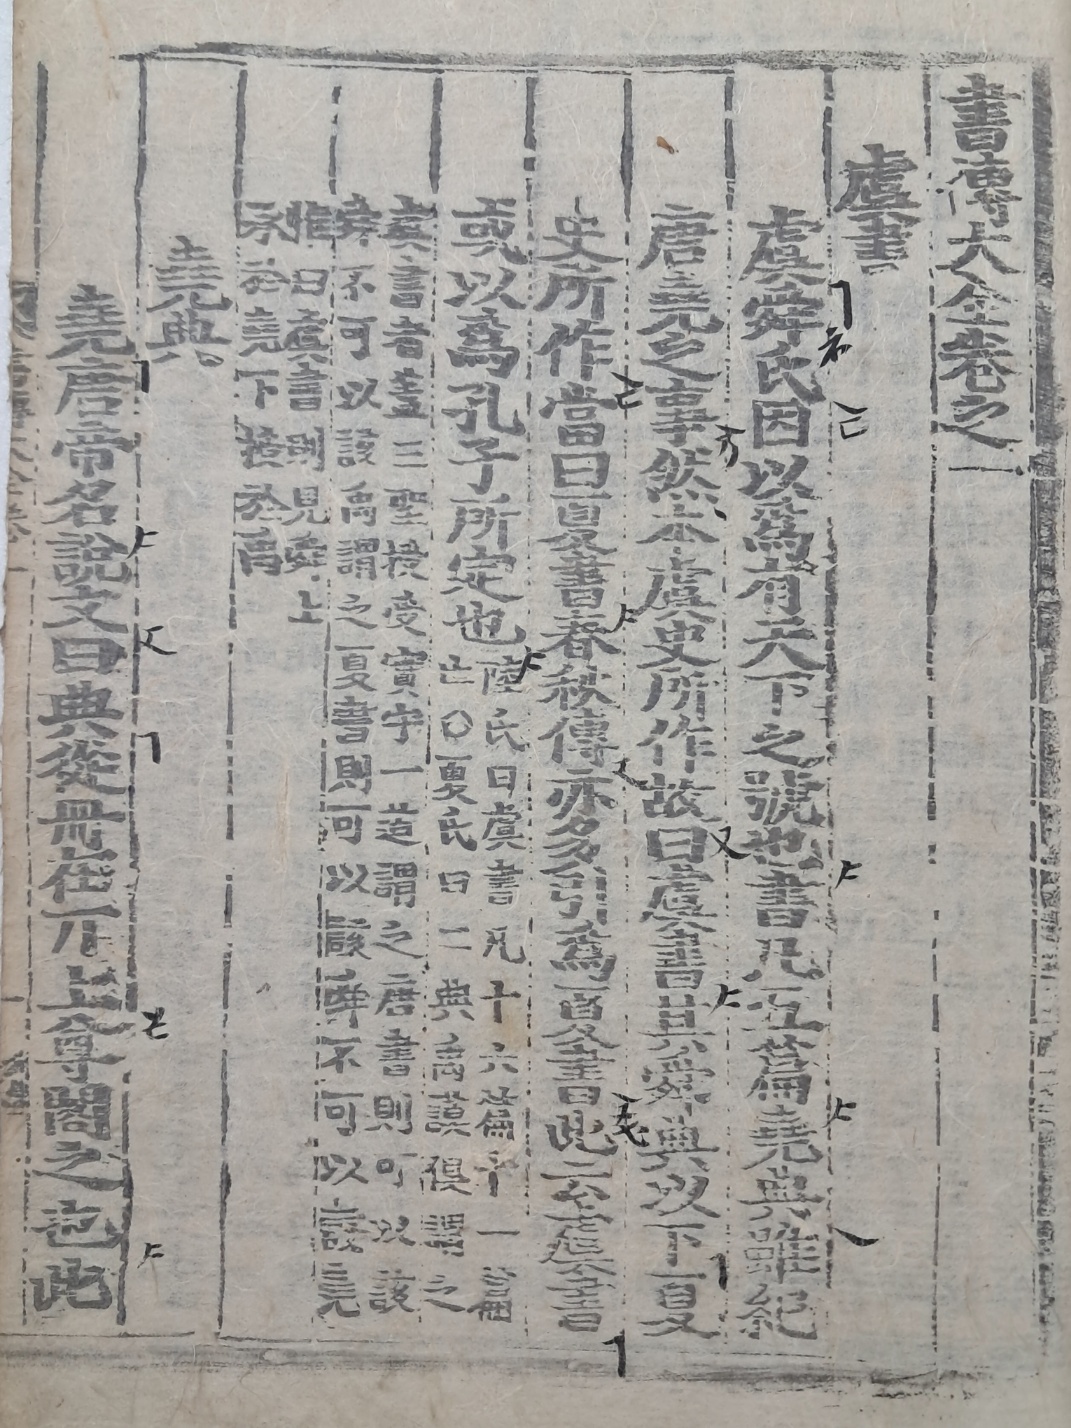 書傳大全卷之一
虞書
虞舜氏因以爲有天下之號也書凡五篇堯典雖紀
唐堯之事然本虞史所作故曰虞書其舜典以下夏
史所作當曰夏書春秋傳亦多引爲夏書此云虞書
或以爲孔子所定也
陸氏曰虞書凡十六篇十一篇
亡○夏氏曰二典禹謨俱謂之
虞書者蓋三聖授受實守一道謂之唐書則可以該
舜不可以該禹謂之夏書則可以該舜不可以該堯
惟曰虞書則見舜上
承於堯下接於禹
堯典
堯唐帝名說文曰典從冊在丌上尊閣之也此